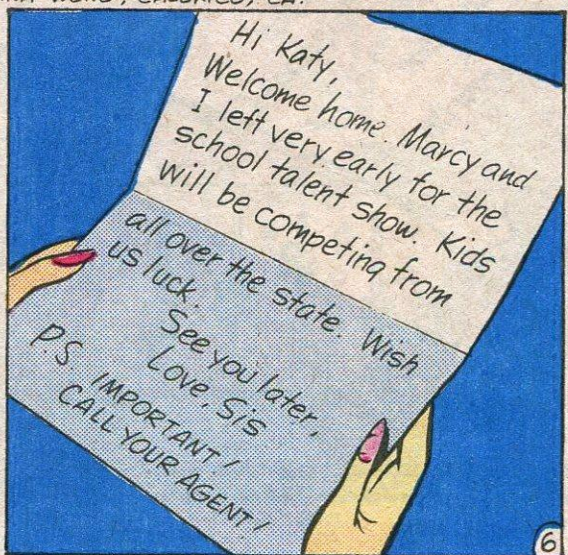 Hi Katy,
Welcome home. Marcy and
I left very early for the
school talent show. Kids
will be competing from
all over the state. Wish
us luck.
See you later,
Love, Sis
P.S. IMPORTANT!
CALL YOUR AGENT!
6